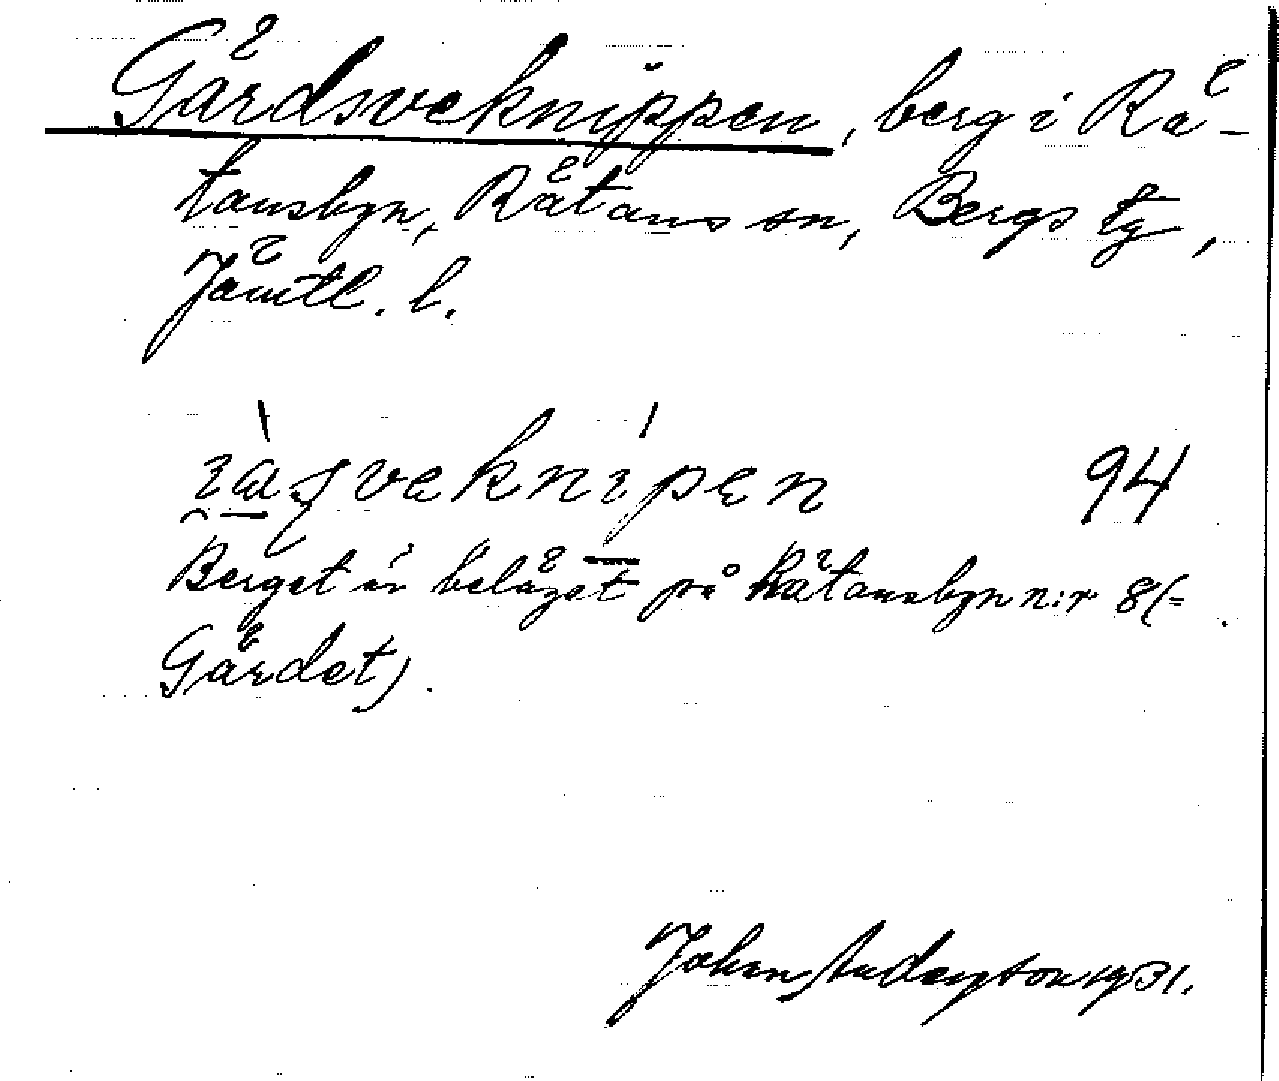 Gärdsveknippen, berg i Rä-
tansbyn, Rätans sn, Bergs tg,
Jämtl. l.
94
Berget är beläget på Rätansbyn n:r 8 (=
Gärdet).
Johan Andersson 1931.